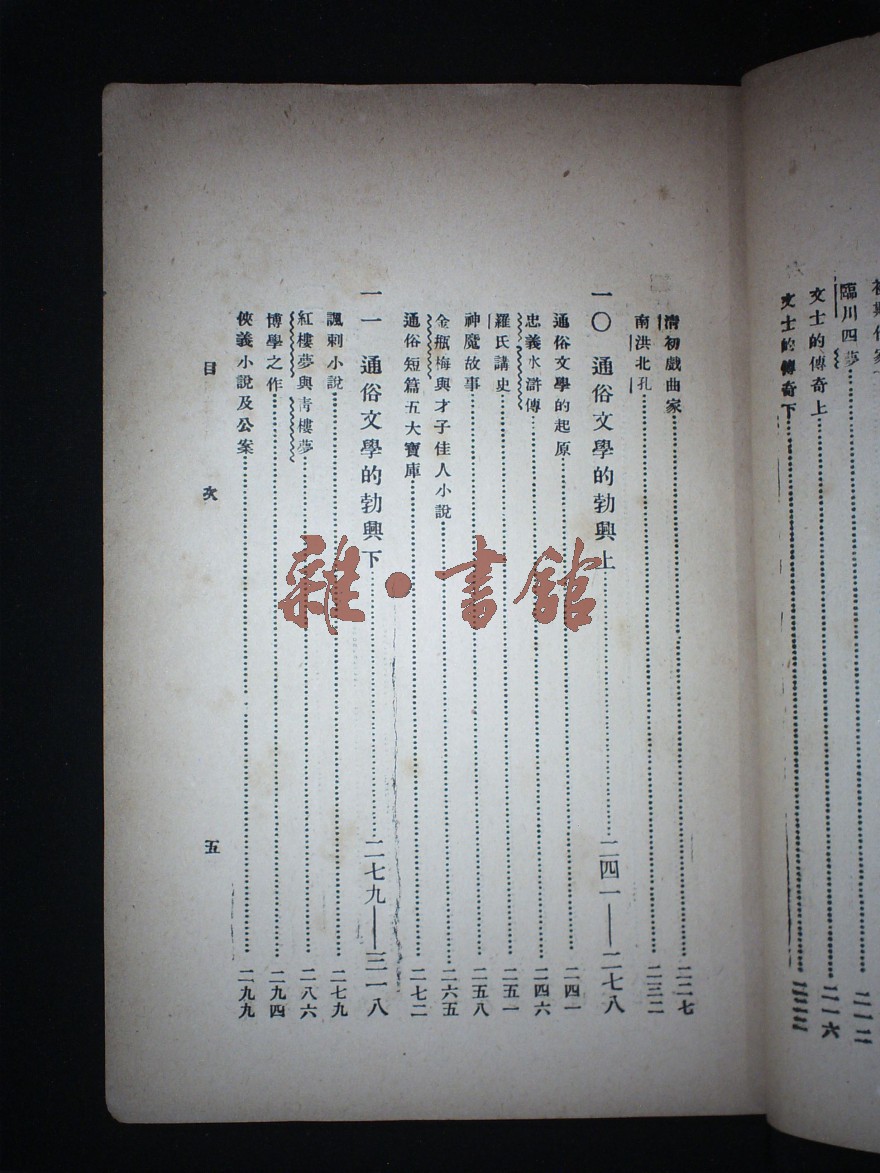 臨川四夢……二一二
文士的傳奇上……二一六
文士的傳奇下……
清初戲曲家……二二七
南洪北孔……二三二
一〇 通俗文學的勃興上……二四一——二七八
通俗文學的起原……二四一
忠義水滸傳……二四六
羅氏講史……二五一
神魔故事……二五八
金瓶梅與才子佳人小說……二六五
通俗短篇五大寶庫……二七二
一一 通俗文學的勃興下……二七九——三一八
諷刺小說……二七九
紅樓夢與青樓夢……二八六
博學之作……二九四
俠義小說及公案……二九九
目次
五
雜·書館